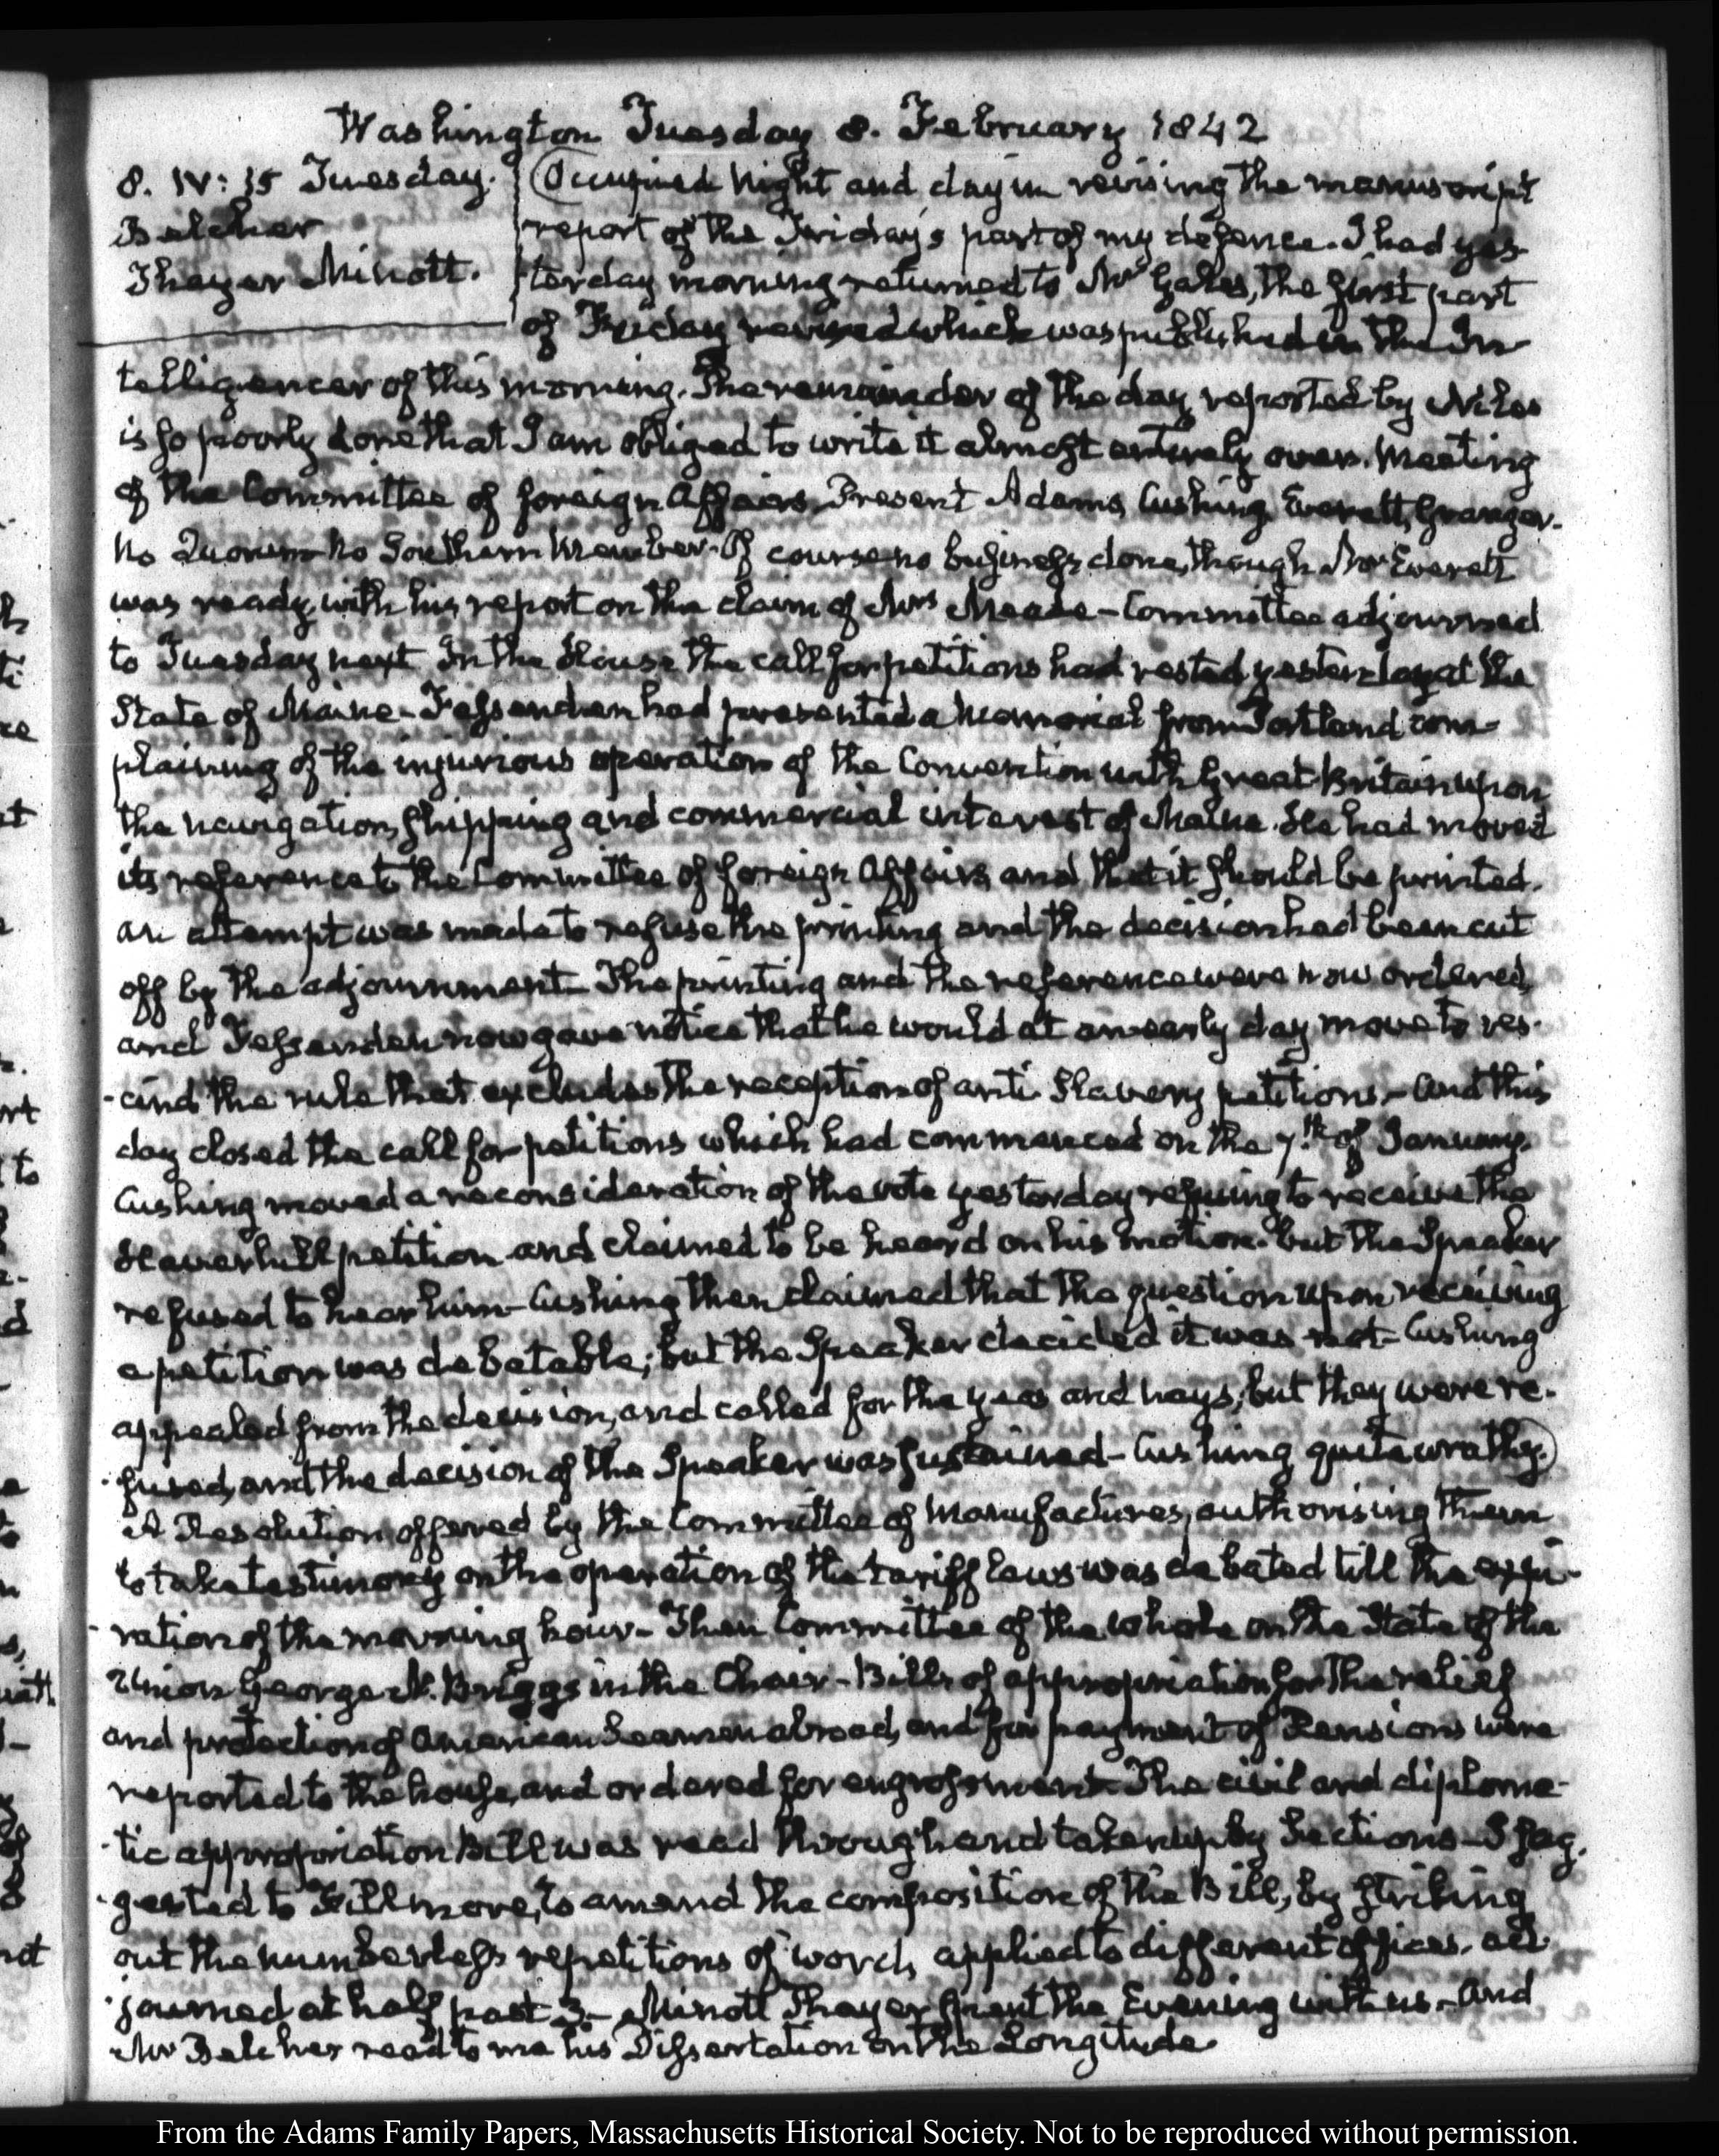 Washington Tuesday 8. February 1842
8. IV: 15 Tuesday.
Belcher
Thayer Minott.
Occupied Night and day in revising the manuscript
report of the Friday's part of my defence. I had yes-
terday morning returned to Mr Gales, the first part
of Friday revised which was published in the In-
telligencer of this morning. The remainder of the day reported by Niles
is so poorly done that I am obliged to write it almost entirely over. Meeting
of the Committee of foreign Affairs. Present Adams, Cushing, Everett, Granger.
No Quorum—No Southern Member. Of course no business done, though Mr Everett
was ready with his report on the claim of Mrs Meade—Committee adjourned
to Tuesday next In the House the call for petitions had rested yesterday at the
State of Maine—Fessenden had presented a Memorial from Portland com-
plaining of the injurious operation of the Convention with Great-Britain upon
the navigation, shipping and commercial interest of Maine. He had moved
its reference to the Committee of foreign Affairs and that it should be printed.
an attempt was made to refuse the printing and the decision had been cut
off by the adjournment—The printing and the reference were now ordered,
and Fessenden now gave notice that he would at an early day move to res-
-cind the rule that excludes the reception of anti Slavery petitions,—And this
day closed the call for petitions which had commenced on the 7th of January.
Cushing moved a reconsideration of the vote yesterday refusing to receive the
Haverhill petition and claimed to be heard on his motion. but the Speaker
refused to hear him—Cushing then claimed that the question upon receiving
a petition was debatable; but the Speaker decided it was not—Cushing
appealed from the decision, and called for the yeas and nays, but they were re-
-fused, and the decision of the Speaker was sustained—Cushing quite wrathy.
A Resolution offered by the Committee of Manufactures, authorising them
to take testimony on the operation of the tariff laws was debated till the expi-
-ration of the morning hour—Then Committee of the whole on the State of the
Union George N. Briggs in the Chair—Bills of appropriation for the relief
and protection of American Seamen abroad, and for payment of Pensions were
reported to the house, and ordered for engrossment—The civil and diploma-
-tic appropriation Bill was read through and taken up by Sections—I sug-
-gested to Fillmore, to amend the composition of the Bill, by striking
out the numberless repetitions of words, applied to different offices. ad-
-journed at half past 3.—Minott Thayer spent the Evening with us—And
Mr Belcher read to me his Dissertation on the Longitude.
From the Adams Family Papers, Massachusetts Historical Society. Not to be reproduced without permission.